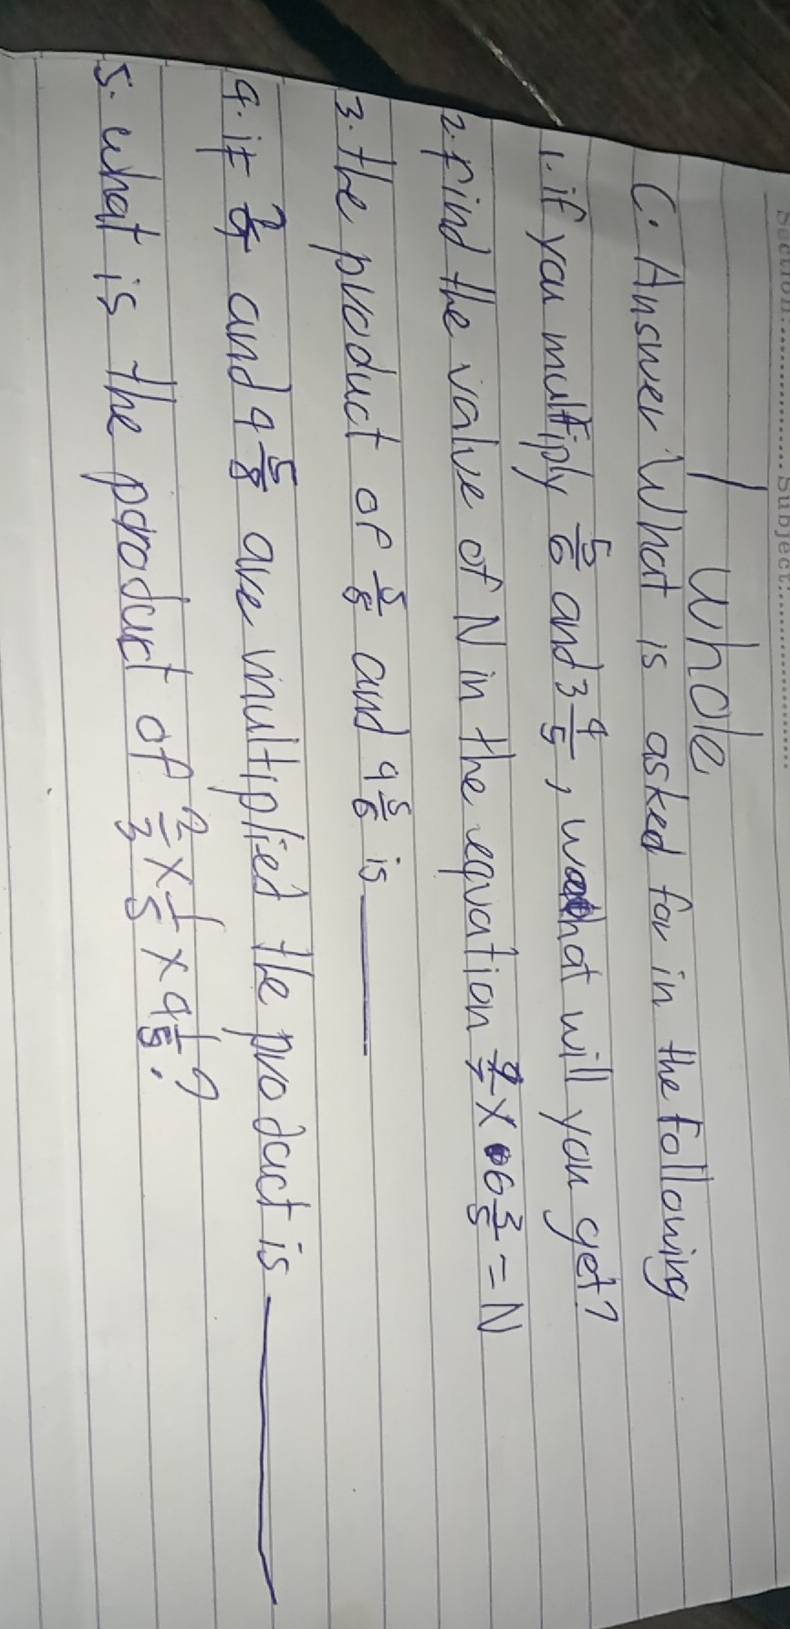 Section: Subject:
1 whole
C. Answer What is asked for in the following
1. if you multiply 5/6 and 3 4/5, what will you get?
2. Find the value of N in the equation × 6 3/5 = N
3. the product of 5/8 and 4 5/6 is
4. if and 4 5/8 are multiplied the product is
5. what is the product of 2/3 × 1/5 × 4 1/5?